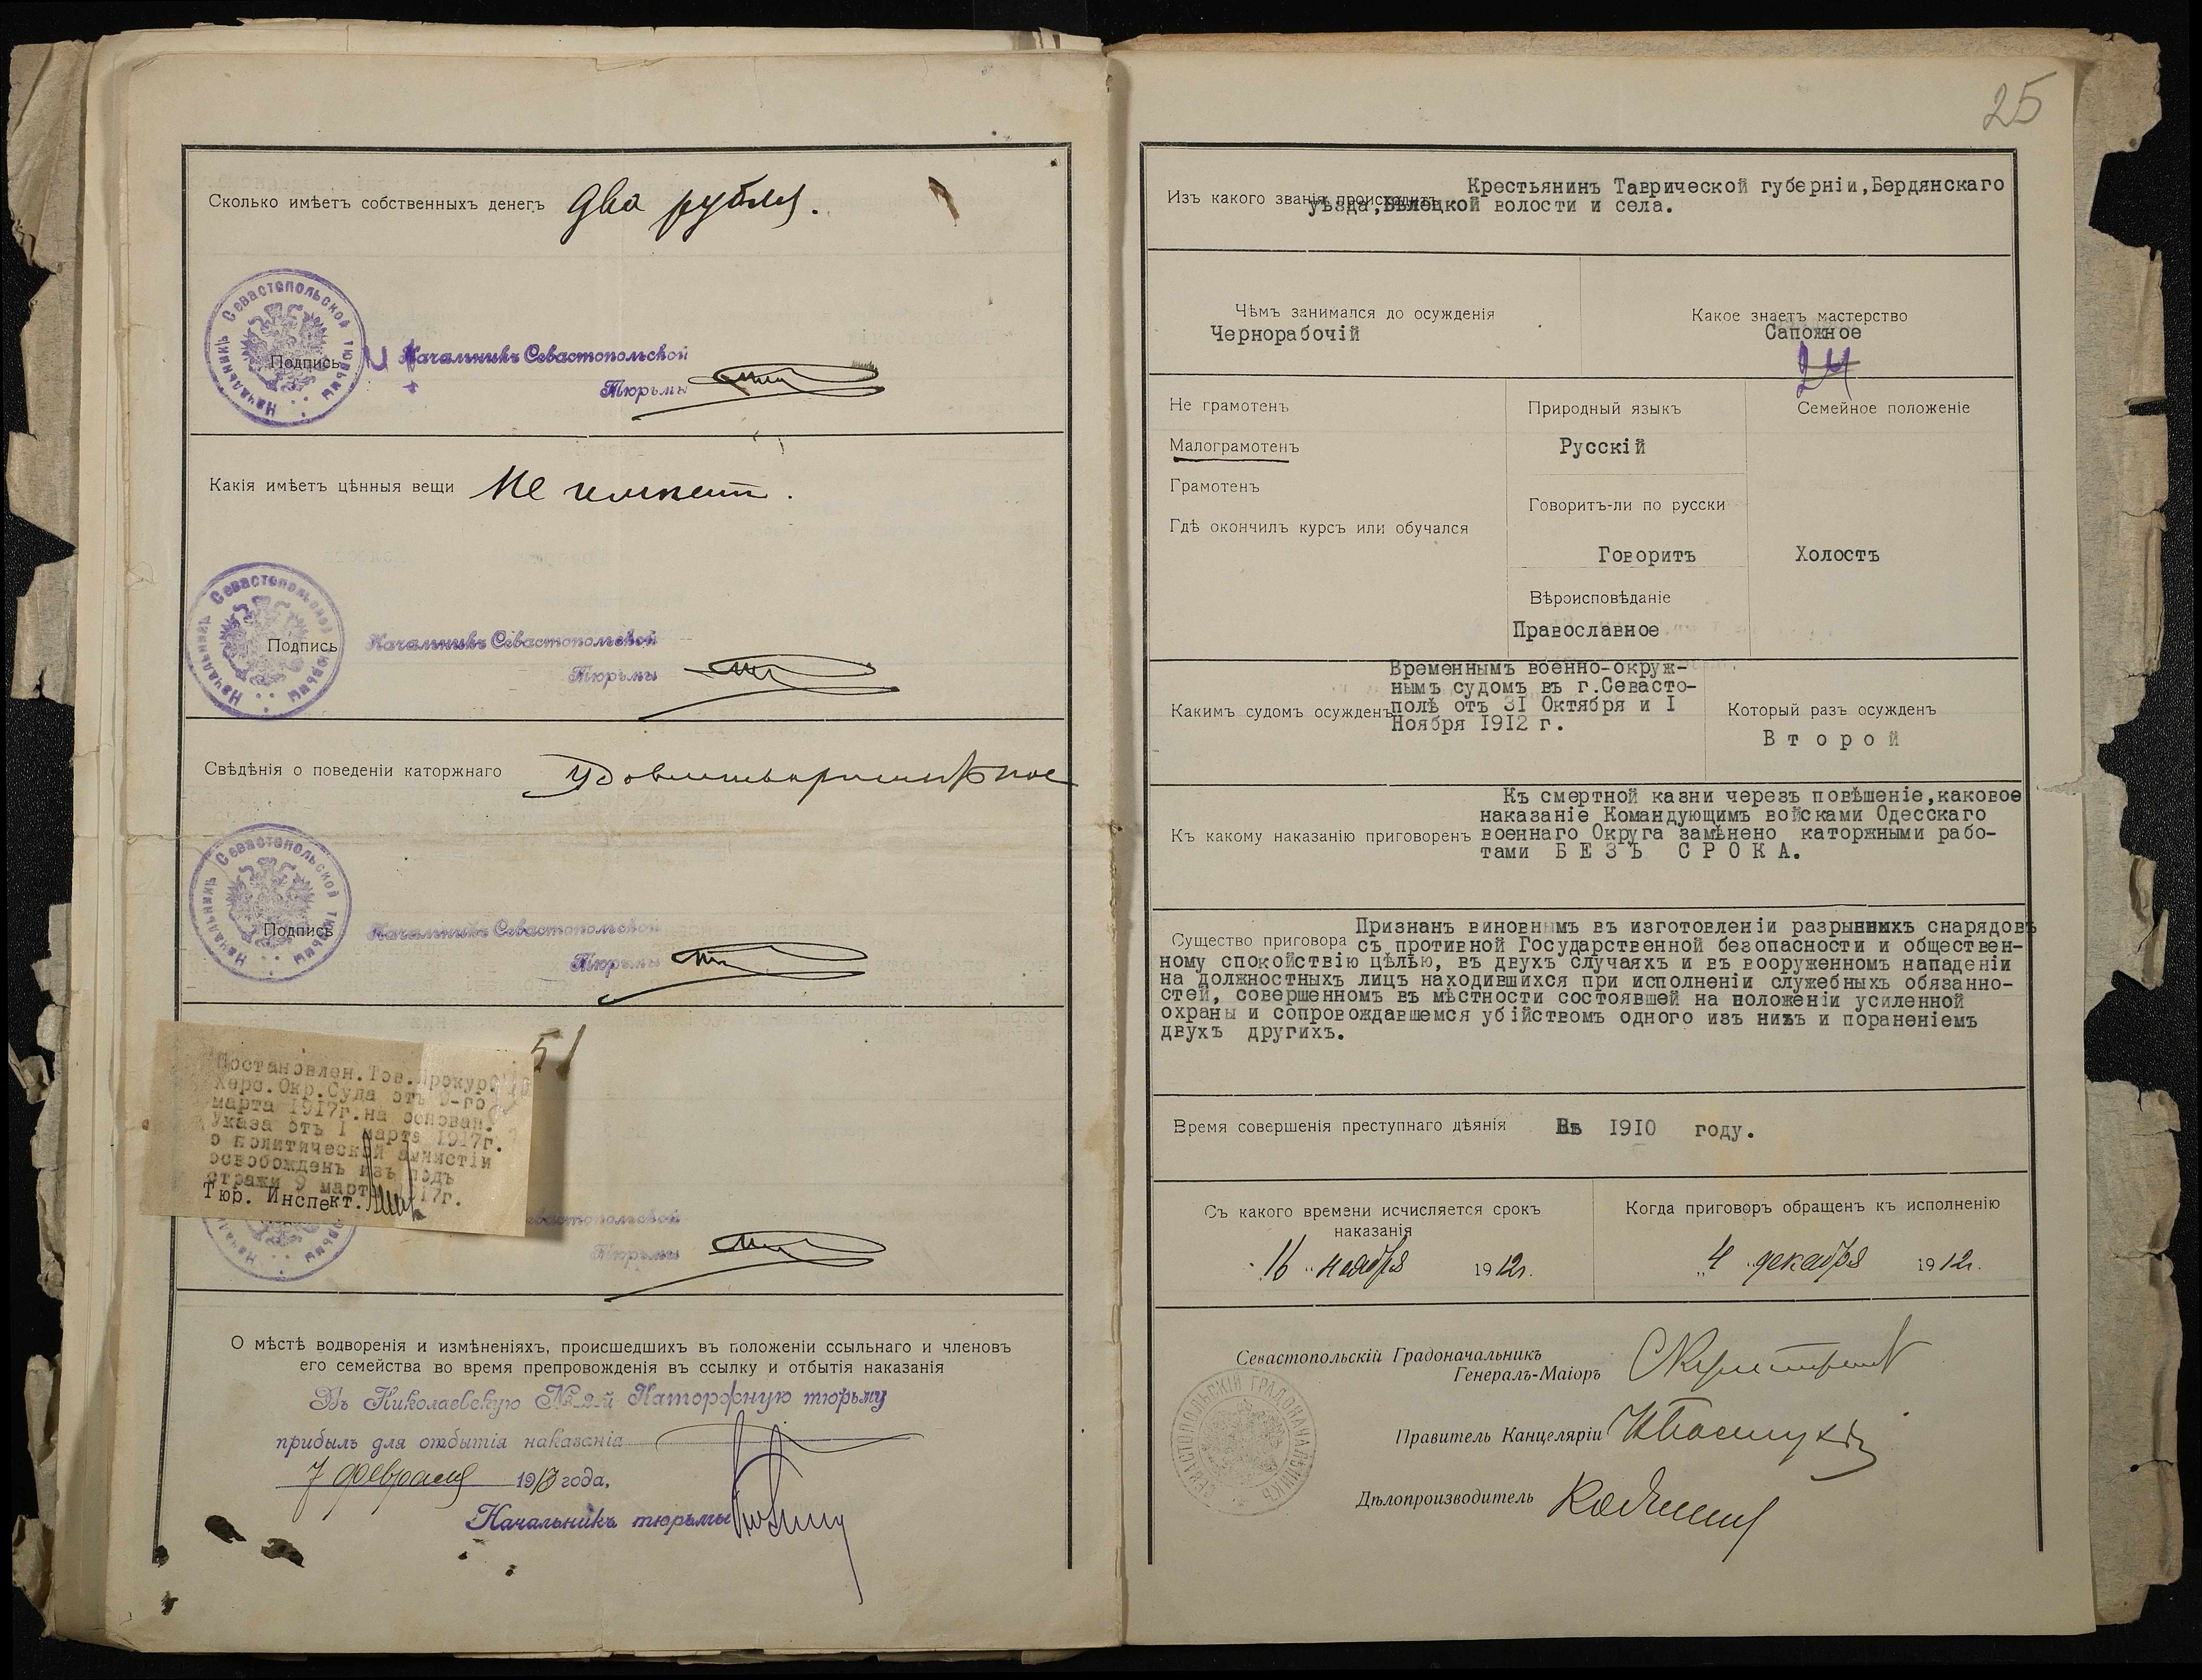 Сколько имѣетъ собственныхъ денегъ два рубля.
Начальникъ Севастопольской тюрьмы
Подпись
Начальникъ Севастопольской
Тюрьмы
Какія имѣетъ цѣнныя вещи Не имѣетъ.
Начальникъ Севастопольской тюрьмы
Подпись
Начальникъ Севастопольской
Тюрьмы
Свѣдѣнія о поведеніи каторжнаго Удовлетворительное
Начальникъ Севастопольской тюрьмы
Подпись
Начальникъ Севастопольской
Тюрьмы
51
Постановлен.Тов.Прокур.
Херс.Окр.Суда отъ 9-го
марта 1917г.на основан.
Указа отъ 1 марта 1917г.
о политической амнистіи
освобожденъ изъ подъ
стражи 9 марта 1917г.
Тюр. Инспект.
Севастопольской
Тюрьмы
О мѣстѣ водворенія и измѣненіяхъ, происшедшихъ въ положеніи ссыльнаго и членовъ
его семейства во время препровожденія въ ссылку и отбытія наказанія
Въ Николаевскую № 2-й Каторжную тюрьму
прибылъ для отбытія наказанія
7 февраля 1913 года,
Начальникъ тюрьмы
25
Крестьянинъ Таврической губерніи,Бердянскаго
Изъ какого званія происходитъ
уѣзда,Бѣлецкой волости и села.
Чѣмъ занимался до осужденія
Чернорабочій
Какое знаетъ мастерство
Сапожное
24
Не грамотенъ
Малограмотенъ
Грамотенъ
Гдѣ окончилъ курсъ или обучался
Природный языкъ
Русскій
Говоритъ-ли по русски
Говоритъ
Вѣроисповѣданіе
Православное
Семейное положеніе
Холостъ
Каким судомъ осужденъ
Временнымъ военно-окруж-
нымъ судомъ въ г.Севасто-
полѣ отъ 31 Октября и I
Ноября 1912 г.
Который разъ осужденъ
Второй
Къ какому наказанію приговоренъ
Къ смертной казни черезъ повѣшеніе,каковое
наказаніе Командующимъ войсками Одесскаго
военнаго Округа замѣнено каторжными рабо-
тами БЕЗЪ СРОКА.
Существо приговора
Признанъ виновнымъ въ изготовленіи разрывныхъ снарядовъ
съ противной Государственной безопасности и обществен-
ному спокойствію цѣлью, въ двухъ случаяхъ и въ вооруженномъ нападеніи
на должностныхъ лицъ находившихся при исполненіи служебныхъ обязанно-
стей, совершенномъ въ мѣстности состоявшей на положеніи усиленной
охраны и сопровождавшемся убійствомъ одного изъ нихъ и пораненіемъ
двухъ другихъ.
Время совершенія преступнаго дѣянія Въ 1910 году.
Съ какого времени исчисляется срокъ
наказанія
16 ноября 1912г.
Когда приговоръ обращенъ къ исполненію
„4 декабря 1912г.
Севастопольскій Градоначальникъ
Генералъ-Маіоръ
СЕВАСТОПОЛЬСКІЙ ГРАДОНАЧАЛЬНИКЪ
Правитель Канцеляріи
Дѣлопроизводитель